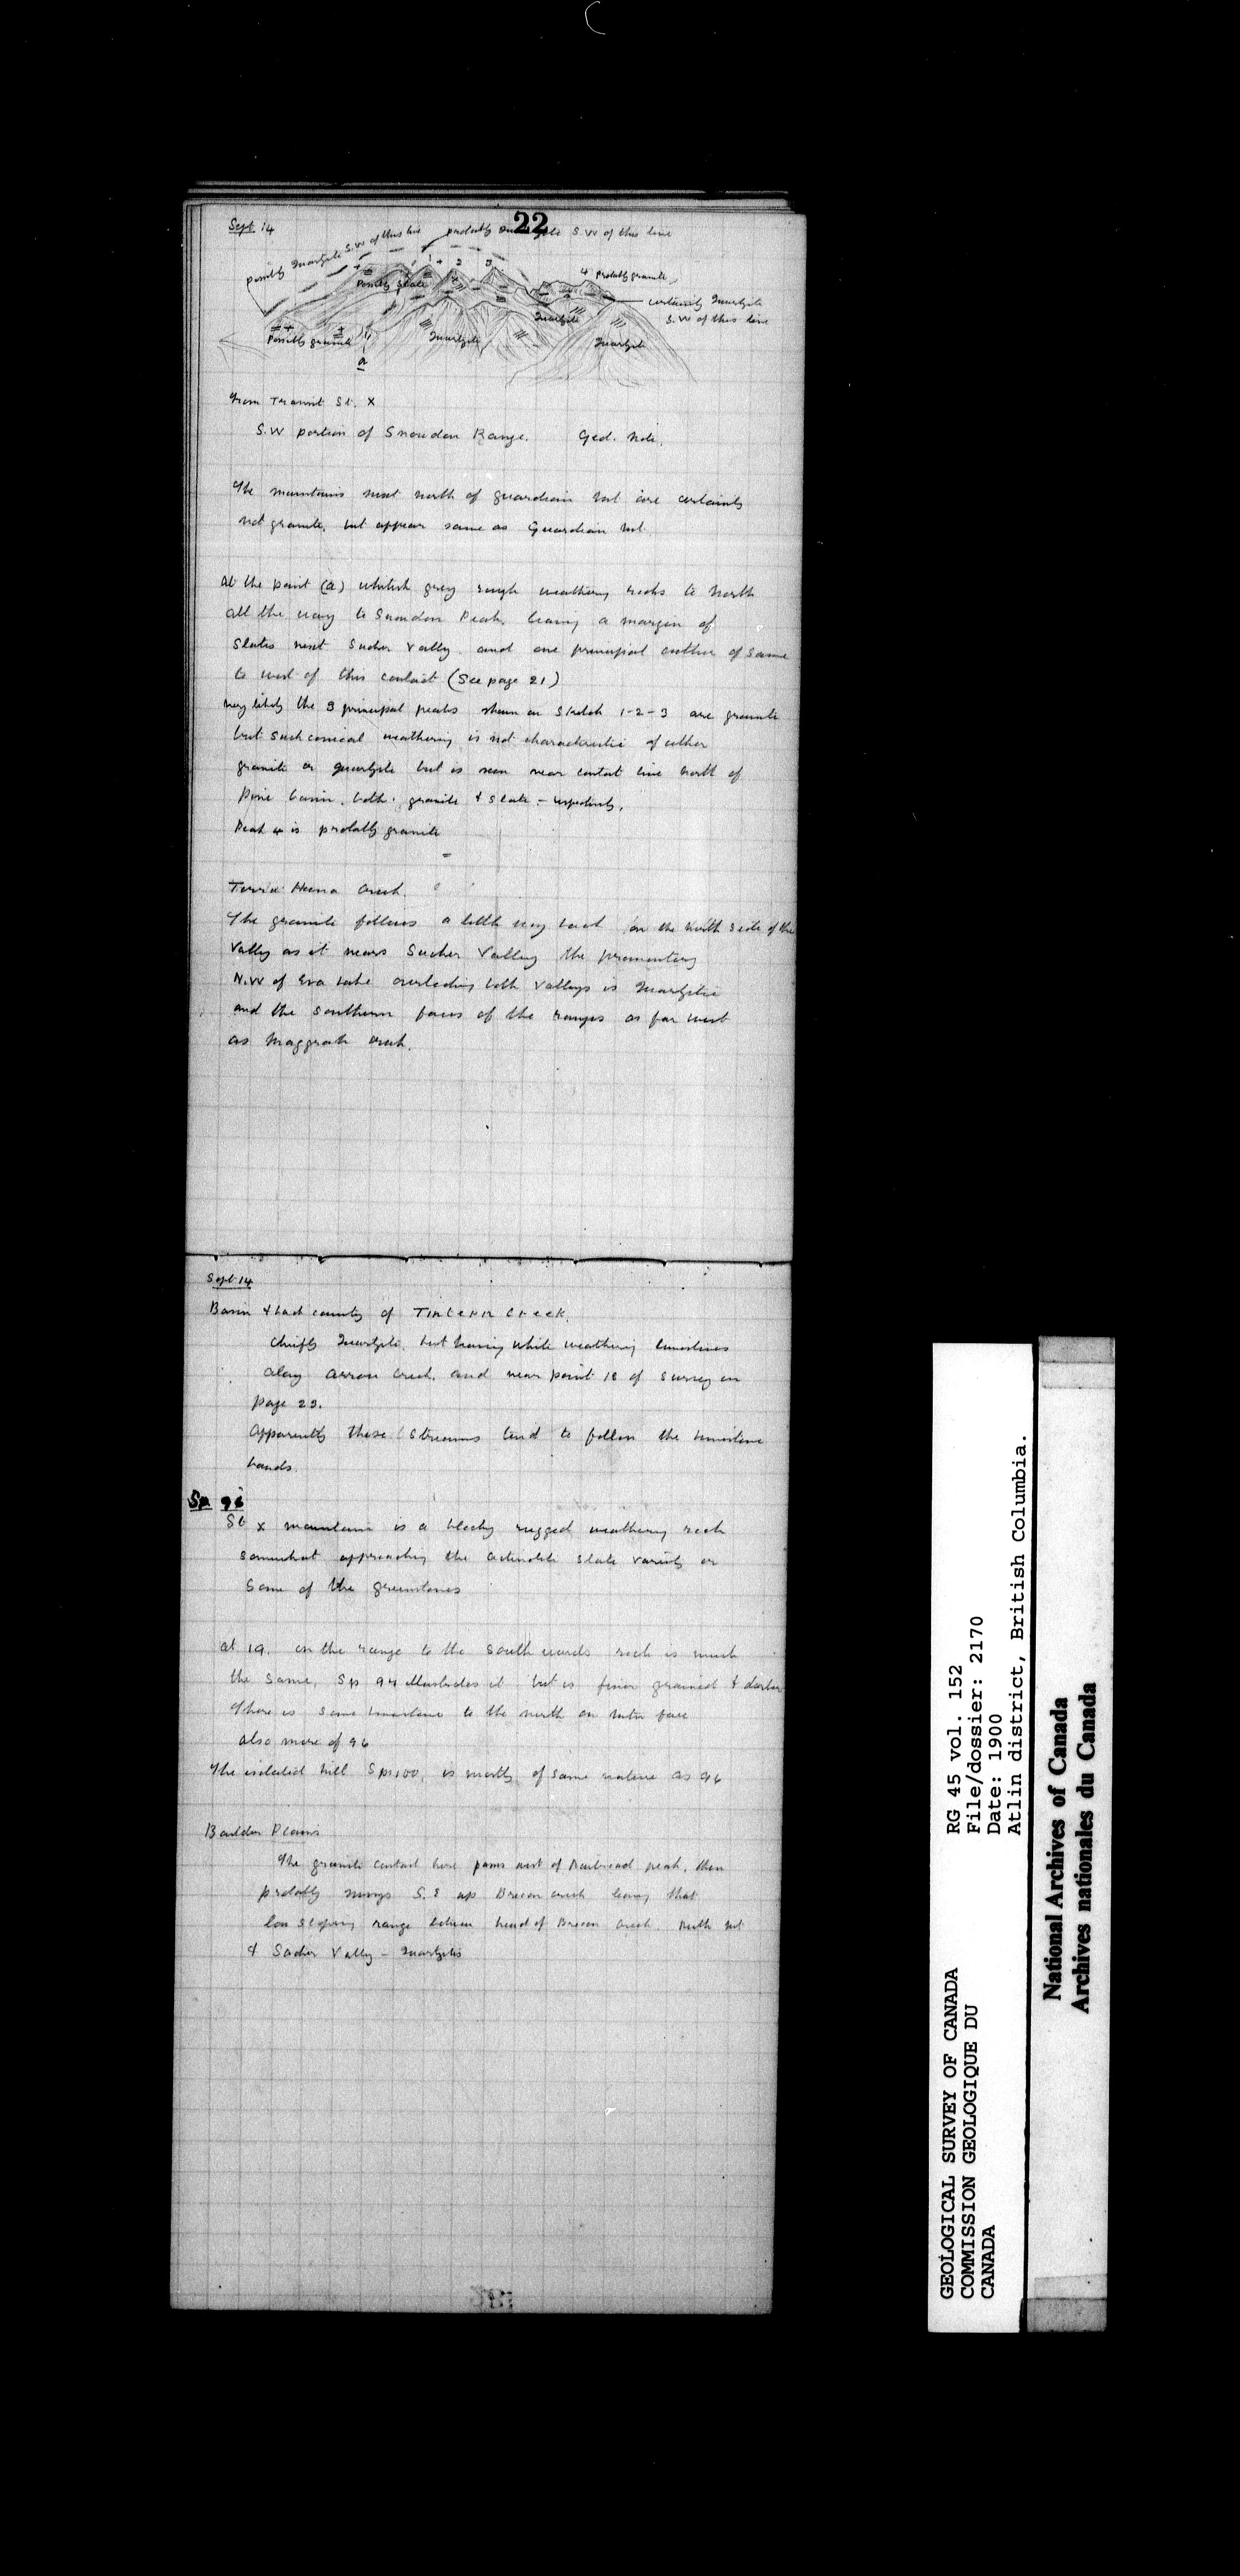 22
Sept 14
possibly Quartzite S.W of this line
probably Quartzite S.W of this line
1 2 3
4 Probably granite
Possibly slate
certainly Quartzite
S.W of this line
Possibly granite
Quartzite
Quartzite
Quartzite
a
From Transit St. X
S.W portion of Snowdon Range. Geol. Note.
The mountains next north of guardian mt are certainly
not granite, but appear same as Guardian mt.
At the point (a) whitish grey rough weathering rocks to north
all the way to Snowdon Peak, leaving a margin of
Slates next Sucker Valley and one principal outlier of same
to west of this contact (See page 21)
very likely the 3 principal peaks shown on Sketch 1-2-3 are granite
but such conical weathering is not characteristic of either
granite or quartzite but is seen near contact line north of
Pine basin, both granite & slate - respectively.
Peak 4 is probably granite
Terra Heena Creek.
The granite follows a little way back on the north side of the
Valley as it nears Sucker Valley the promontory
N.W of Eva Lake overlooking both Valleys is Quartzite
and the southern faces of the ranges as far west
as Maggrath creek.
Sept 14
Basin & back country of Tintern Creek.
Chiefly Quartzite, but having white weathering limestones
along Arrow Creek, and near point 18 of survey on
page 23.
Apparently these streams tend to follow the limestone
bands.
Sp 96
St x mountain is a blocky rugged weathering rock
somewhat approaching the actinolite slate variety or
some of the greenstones
at 19. on the range to the southwards rock is much
the same, Sp 94 illustrates it but is finer grained & darker
There is some limestone to the north on outer face
also more of 96
The isolated hill Sp 100, is mostly of same nature as 96
Boulder Plains
The granite contact here passes west of peak, then
probably swings S.E up Brecon creek leaving that
low sloping range between head of Brecon Creek. Ruth mt
& Sucker Valley - Quartzites
GEOLOGICAL SURVEY OF CANADA
COMMISSION GEOLOGIQUE DU
CANADA
RG 45 vol. 152
File/dossier: 2170
Date: 1900
Atlin district, British Columbia.
National Archives of Canada
Archives nationales du Canada